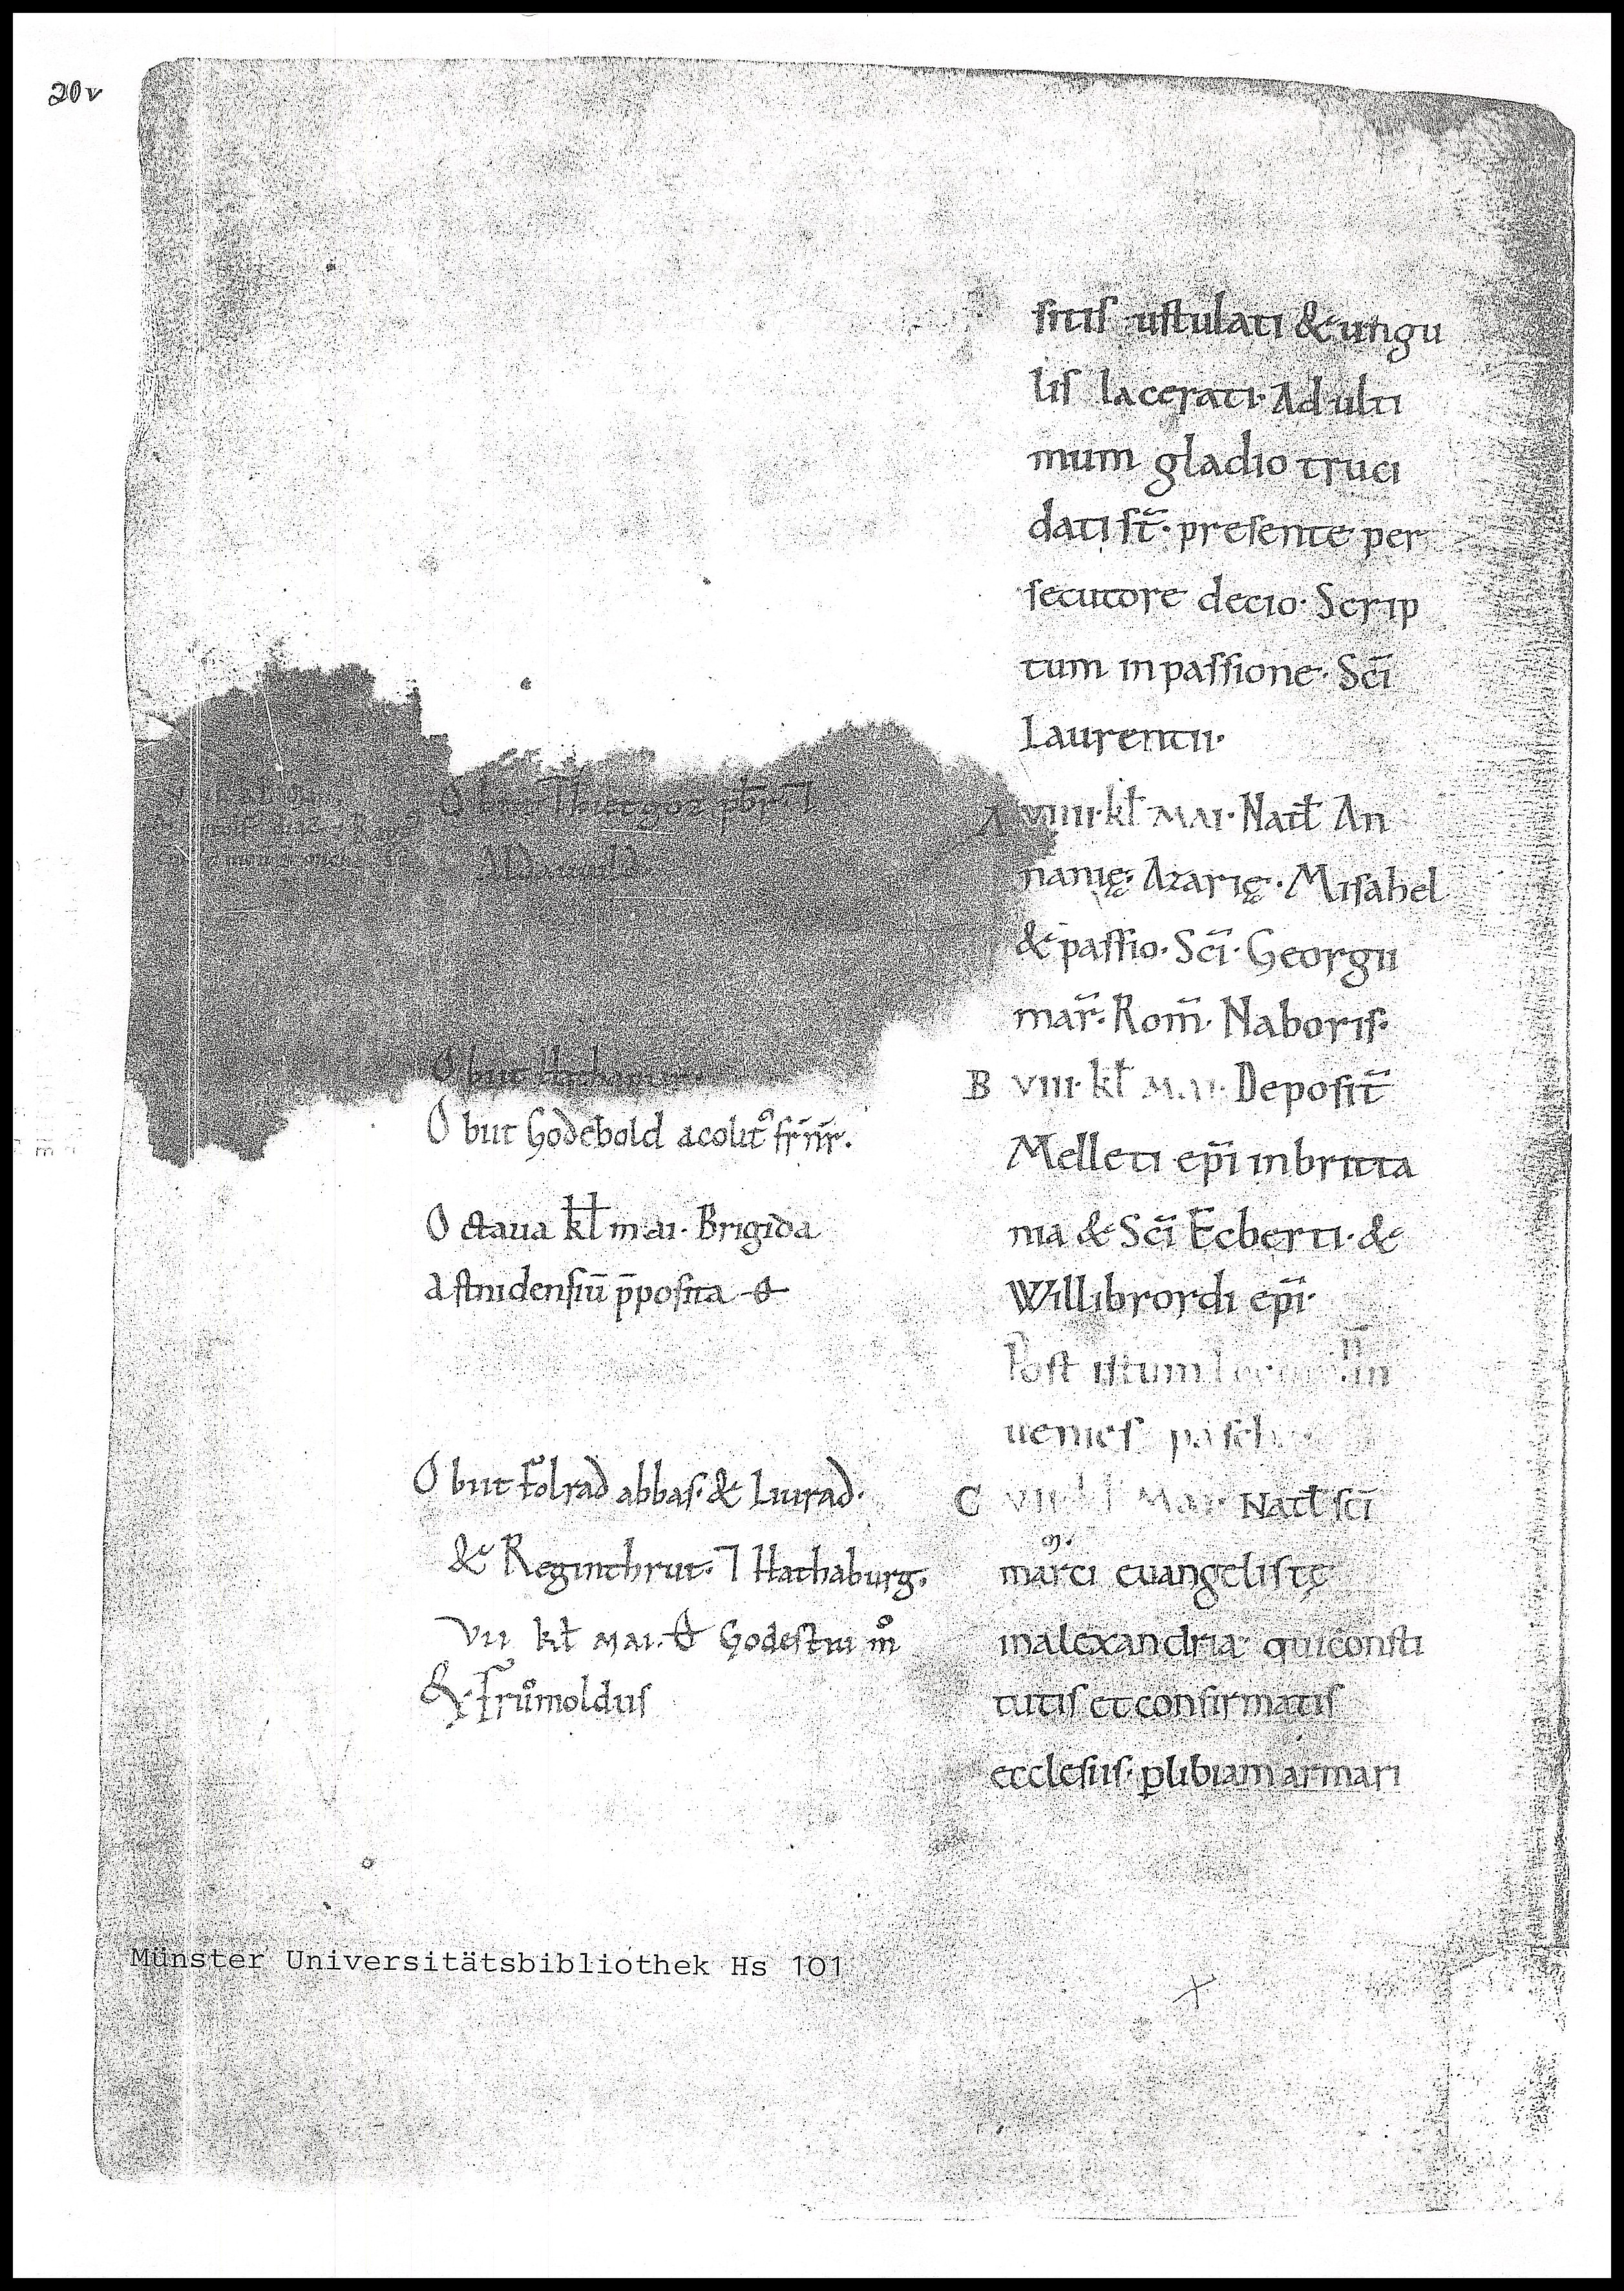 20v
sitis ustulati & ungu
lis lacerati· Ad ulti
mum gladio truci
dati st̄· presente per
secutore decio· Scrip
tum in passione· Sc̄i
Laurentii·
A VIIII· kł MAI· Natł An
nanię· Azarię· Misahel
& passio· Sc̄i· Georgii
mar̄· Rom̄· Naboris·
B VIII· kł MAI· Deposit̄
Melleti ep̄i in britta
nia & Sc̄i Ecberti· &
Willibrordi ep̄i·
Post istum locum n̄ in
uenies pasch
C VII kł MAI· Natł sc̄i
marci euangelistę
in alexandria· qui consti
tutis et confirmatis
ecclesiis· ꝑ libiam armari
O biit Thietgoz pb̄r· ⁊
O biit
O biit Godebold acolit᷒ fr̄ nr̄·
O ctaua kł mai· Brigida
astnidensiū p̄posita
O biit Folrad abbas· & Liurad·
& Reginthrut· ⁊ Hathaburg·
VII kł MAI· Godestiu
& Frůmoldus
Münster Universitätsbibliothek Hs 101